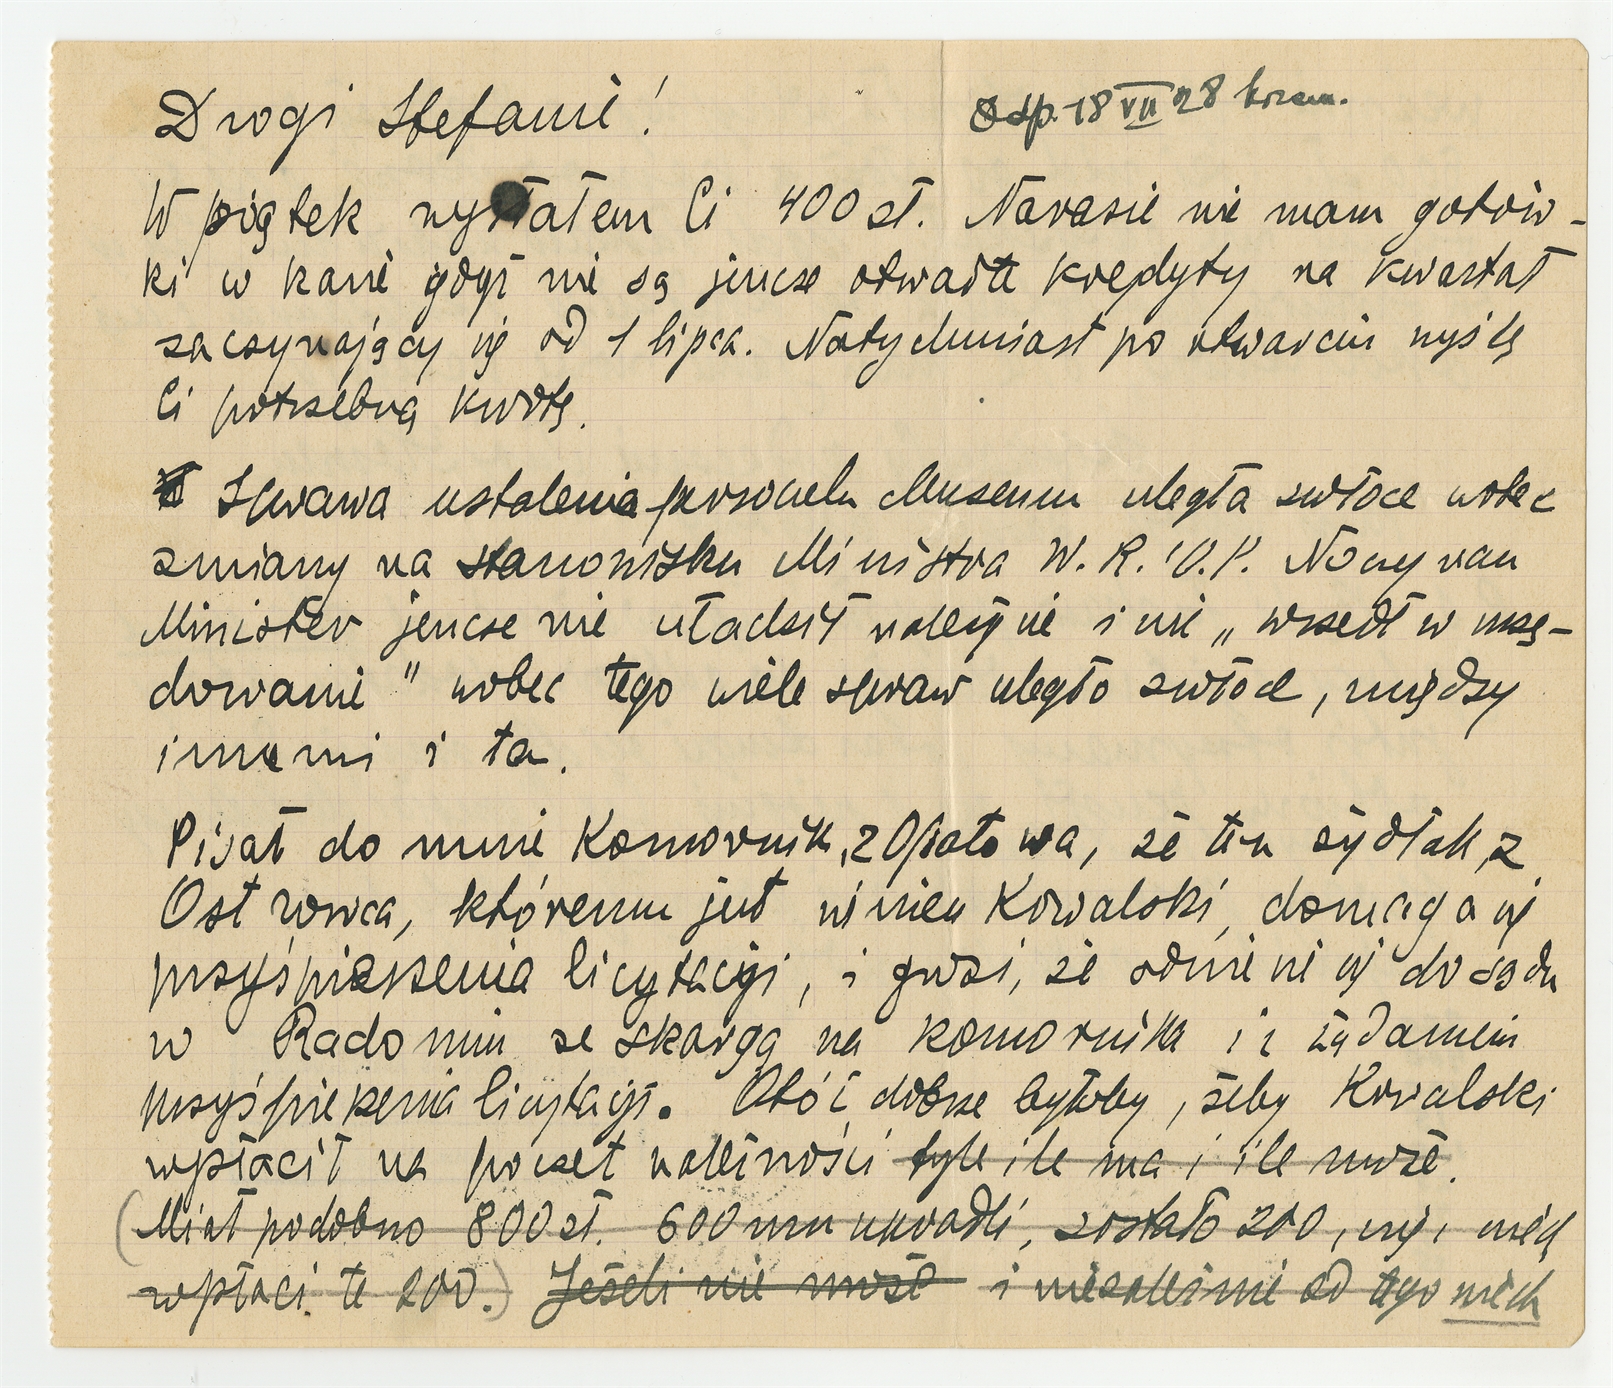 Drogi Stefanie!
Odp. 18 VII 28 krzem.
W piątek wysłałem Ci 400 zł. Narazie nie mam gotów-
ki w kasie gdyż nie są jeszcze otwarte kredyty na kwartał
zaczynający się od 1 lipca. Natychmiast po otwarciu wyślę
Ci potrzebną kwotę.
Sprawa ustalenia personelu Muzeum uległa zwłoce wobec
zmiany na stanowisku Ministra W. R. i O. P. Nowy pan
Minister jeszcze nie uładził należycie i nie „wszedł w urzę-
dowanie" wobec tego wiele spraw uległo zwłoce, między
innemi i ta.
Pisał do mnie Komornik z Opatowa, że ten żydłak z
Ostrowca, któremu jest winien Kowalski, domaga się
przyśpieszenia licytacji, i grozi, że odniesie się do sądu
w Radomiu ze skargą na komornika i z żądaniem
przyśpieszenia licytacji. Otóż dobrze byłoby, żeby Kowalski
wpłacił na poczet należności tyle ile ma i ile może.
(Miał podobno 800 zł. 600 mu ukradli, zostało 200, więc niech
wpłaci te 200.) Jeżeli nie może i niezależnie od tego niech